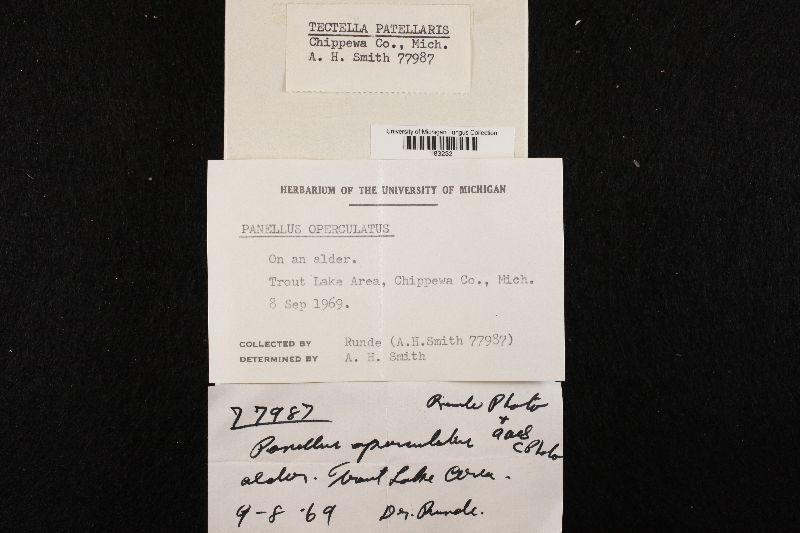 TECTELLA PATELLARIS
Chippewa Co., Mich.
A. H. Smith 77987
University of Michigan Fungus Collection
183232
HERBARIUM OF THE UNIVERSITY OF MICHIGAN
PANELLUS OPERCULATUS
On an alder.
Trout Lake Area, Chippewa Co., Mich.
8 Sep 1969.
COLLECTED BY Runde (A.H.Smith 77987)
DETERMINED BY A. H. Smith
77987 Runde Photo
Panellus operculatus +
C Photo
alder. Trout Lake Area.
9-8-69 Dr. Runde.